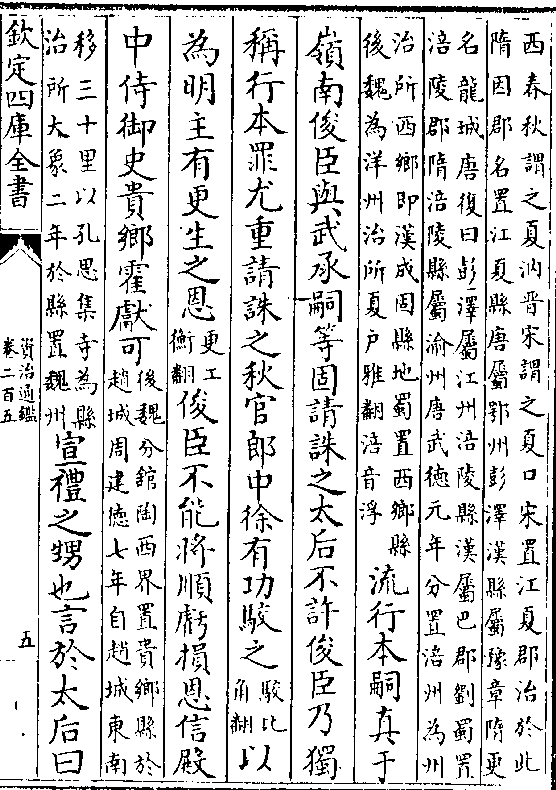 西春秋謂之夏汭晋宋謂之夏口宋置江夏郡治於此
隋因郡名置江夏縣唐屬鄂州彭澤漢縣屬豫章隋更
名龍城唐復曰彭澤屬江州涪陵縣漢屬巴郡劉蜀置
涪陵郡隋涪陵縣屬渝州唐武德元年分置涪州為州
治所西鄉即漢成固縣地蜀置西鄉縣
後魏為洋州治所夏户雅翻涪音浮
流行本嗣真于
嶺南俊臣與武承嗣等固請誅之太后不許俊臣乃獨
稱行本罪尤重請誅之秋官郎中徐有功駮之
駮比
角翻
以
為明主有更生之恩
更工
衡翻
俊臣不能將順虧損恩信殿
中侍御史貴鄉霍獻可
後魏分館陶西界置貴鄉縣於
趙城周建德七年自趙城東南
移三十里以孔思集寺為縣
治所大象二年於縣置魏州
宣禮之甥也言於太后曰
欽定四庫全書
資治通鑑
卷二百五
五